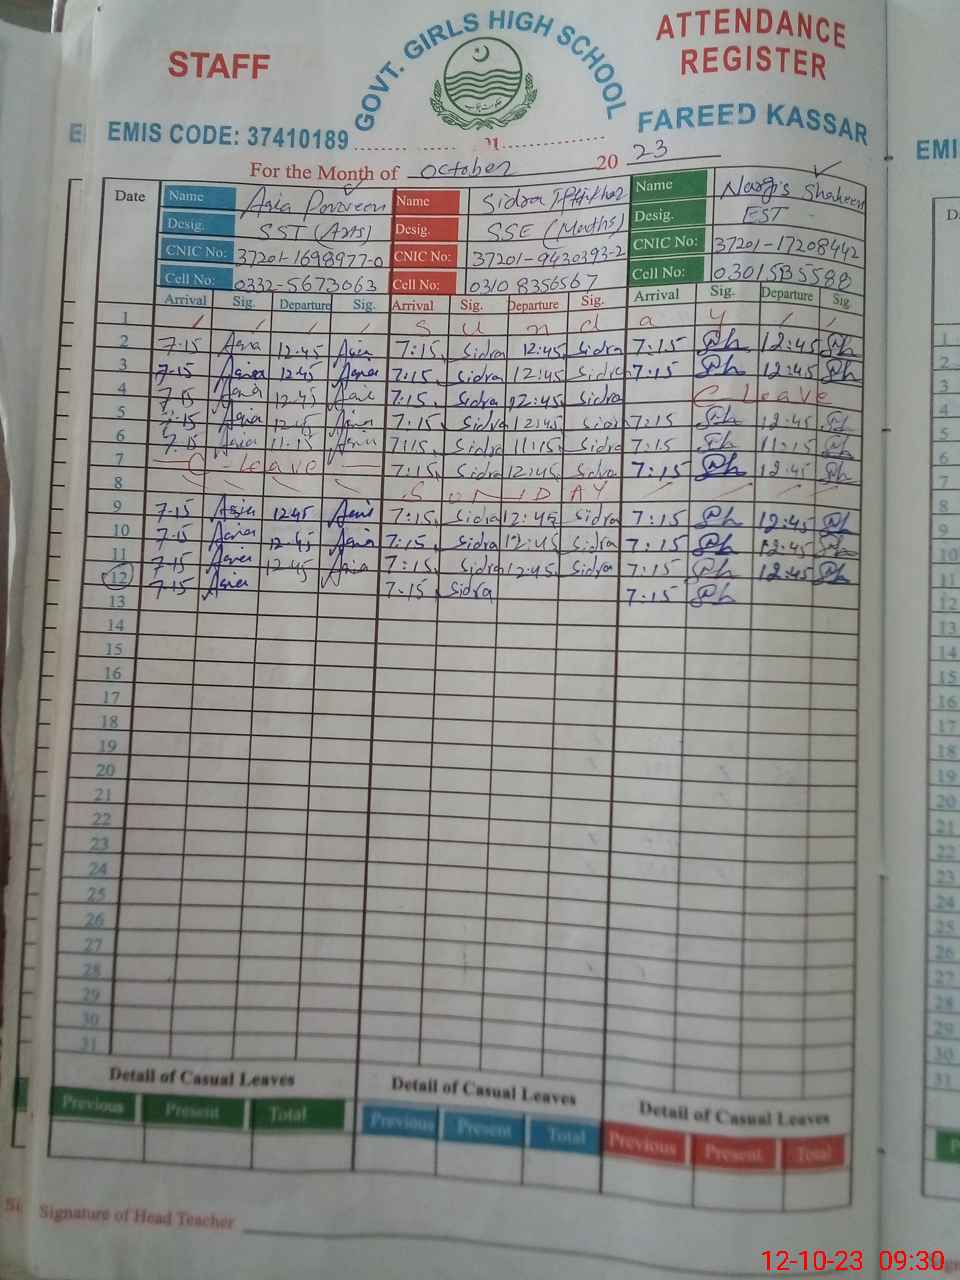 GOVT. GIRLS HIGH SCHOOL
ATTENDANCE
STAFF
REGISTER
EMIS CODE: 37410189
FAREED KASSAR
For the Month of October 20 23
Date Name Asia Parveen Name Sidra Iftikhar Name Nargis Shaheen
Desig. SST (Arts) Desig. SSE (Maths) Desig. EST
CNIC No: 37201-1698977-0 CNIC No: 37201-9430393-2 CNIC No: 37201-17208442
Cell No: 0332-5673063 Cell No: 0310 8356567 Cell No: 0301535588
Arrival Sig. Departure Sig. Arrival Sig. Departure Sig. Arrival Sig. Departure Sig.
1 S u n d a y
2 7-15 Asia 12-45 Asia 7:15 Sidra 12:45 Sidra 7:15 Sh 12:45 Sh
3 7-15 Asia 12-45 Asia 7:15 Sidra 12:45 Sidra 7:15 Sh 12:45 Sh
4 7-15 Asia 12-45 Asia 7:15 Sidra 12:45 Sidra C Leave
5 7-15 Asia 12-45 Asia 7:15 Sidra 12:45 Sidra 7:15 Sh 12:45 Sh
6 7-15 Asia 11-15 Asia 7:15 Sidra 11:15 Sidra 7:15 Sh 11:15 Sh
7 C-Leave 7:15 Sidra 12:45 Sidra 7:15 Sh 12:45 Sh
8 S U N D A Y
9 7-15 Asia 12-45 Asia 7:15 Sidra 12:45 Sidra 7:15 Sh 12:45 Sh
10 7-15 Asia 12-45 Asia 7:15 Sidra 12:45 Sidra 7:15 Sh 12:45 Sh
11 7-15 Asia 12-45 Asia 7:15 Sidra 12:45 Sidra 7:15 Sh 12:45 Sh
12 7-15 Asia 7:15 Sidra 7:15 Sh
13
14
15
16
17
18
19
20
21
22
23
24
25
26
27
28
29
30
31
Detail of Casual Leaves Detail of Casual Leaves Detail of Casual Leaves
Previous Present Total Previous Present Total Previous Present Total
Signature of Head Teacher
12-10-23 09:30